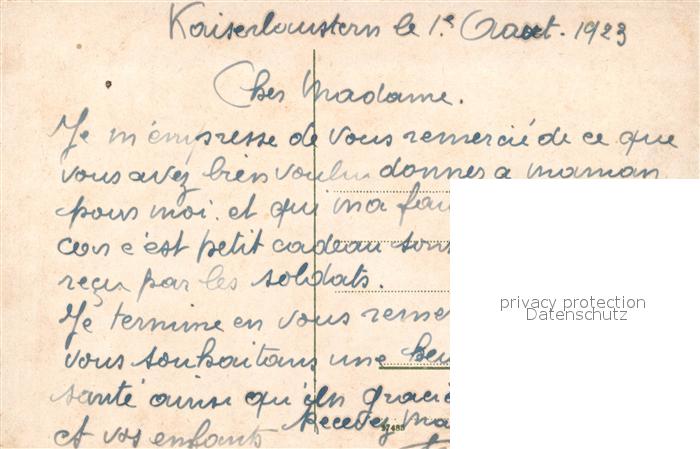 Kaiserlaustern le 1.e Aout. 1923
Cher Madame.
Je m'empresse de vous remercié de ce que
vous avez bien voulu donner a maman
pour moi. et qui ma fau
car c'est petit cadeau son
reçu par les soldats.
Je termine en vous remer
vous souhaitans une
santé ainsi qu'
Recevez Ma
et vos enfants
27488
privacy protection
Datenschutz